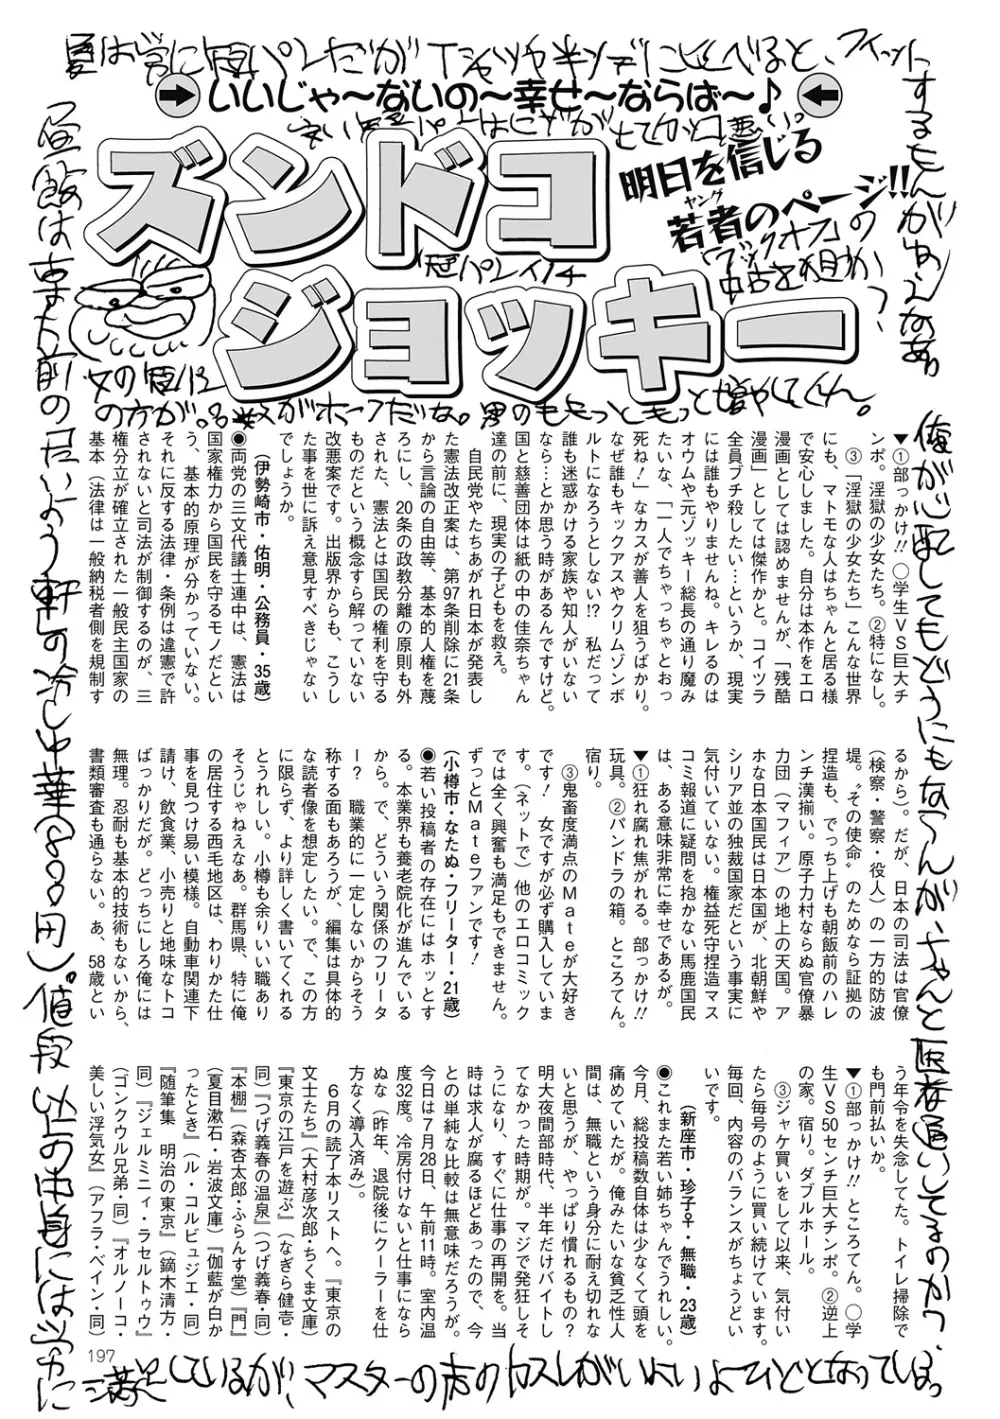 夏は常に短パンだがTシャツや半ソデに比べると、フィット
するもんがねえなあ。
いいじゃ〜ないの〜幸せ〜ならば〜♪
ズンドコ
ジョッキー
明日を信じる
若者のページ!!
ヤング
中古を狙うか
女の短パン
の方が。
男のももっともっと増やしてくれ。
昼飯は
前の
軒の冷し中華(800円)。値段
俺が心配してもどうにもならんが、ちゃんと医者通いしてるのか?
満足しているが、マスターの
▼①部っかけ!! 〇学生VS巨大チ
ンポ。淫獄の少女たち。②特になし。
③「淫獄の少女たち」こんな世界
にも、マトモな人はちゃんと居る様
で安心しました。自分は本作をエロ
漫画としては認めませんが、「残酷
漫画」としては傑作かと。コイツラ
全員ブチ殺したい…というか、現実
には誰もやりませんね。キレるのは
オウムや元ゾッキー総長の通り魔み
たいな、「一人でちゃっちゃとおっ
死ね!」なカスが善人を狙うばかり。
なぜ誰もキックアスやクリムゾンボ
ルトになろうとしない!? 私だって
誰も迷惑かける家族や知人がいない
なら…とか思う時があるんですけど。
国と慈善団体は紙の中の佳奈ちゃん
達の前に、現実の子どもを救え。
自民党やたちあがれ日本が発表し
た憲法改正案は、第97条削除に21条
から言論の自由等、基本的人権を蔑
ろにし、20条の政教分離の原則も外
された、憲法とは国民の権利を守る
ものだという概念すら解っていない
改悪案です。出版界からも、こうし
た事を世に訴え意見すべきじゃない
でしょうか。
(伊勢崎市・佑明・公務員・35歳)
◉両党の三文代議士連中は、憲法は
国家権力から国民を守るモノだとい
う、基本的原理が分かっていない。
それに反する法律・条例は違憲で許
されないと司法が制御するのが、三
権分立が確立された一般民主国家の
基本(法律は一般納税者側を規制す
るから)。だが、日本の司法は官僚
(検察・警察・役人)の一方的防波
堤。〝その使命〟のためなら証拠の
捏造も、でっち上げも朝飯前のハレ
ンチ漢揃い。原子力村ならぬ官僚暴
力団(マフィア)の地上の天国。ア
ホな日本国民は日本国が、北朝鮮や
シリア並の独裁国家だという事実に
気付いていない。権益死守捏造マス
コミ報道に疑問を抱かない馬鹿国民
は、ある意味非常に幸せであるが。
▼①狂れ腐れ焦がれる。部っかけ!!
玩具。②パンドラの箱。ところてん。
宿り。
③鬼畜度満点のMateが大好き
です! 女ですが必ず購入していま
す。(ネットで)他のエロコミック
では全く興奮も満足もできません。
ずっとMateファンです!
(小樽市・なたぬ・フリーター・21歳)
◉若い投稿者の存在にはホッとす
る。本業界も養老院化が進んでいる
から。で、どういう関係のフリータ
ー? 職業的に一定しないからそう
称する面もあろうが、編集は具体的
な読者像を想定したい。で、この方
に限らず、より詳しく書いてくれる
とうれしい。小樽も余りいい職あり
そうじゃねえなあ。群馬県、特に俺
の居住する西毛地区は、わりかた仕
事を見つけ易い模様。自動車関連下
請け、飲食業、小売りと地味なトコ
ばっかりだが。どっちにしろ俺には
無理。忍耐も基本的技術もないから、
書類審査も通らない。あ、58歳とい
う年令を失念してた。トイレ掃除で
も門前払いか。
▼①部っかけ!! ところてん。〇学
生VS50センチ巨大チンポ。②逆上
の家。宿り。ダブルホール。
③ジャケ買いをして以来、気付い
たら毎号のように買い続けています。
毎回、内容のバランスがちょうどい
いです。
(新座市・珍子♀・無職・23歳)
◉これまた若い姉ちゃんでうれしい。
今月、総投稿数自体は少なくて頭を
痛めていたが。俺みたいな貧乏性人
間は、無職という身分に耐え切れな
いと思うが、やっぱり慣れるもの?
明大夜間部時代、半年だけバイトし
てなかった時期が。マジで発狂しそ
うになり、すぐに仕事の再開を。当
時は求人が腐るほどあったので、今
との単純な比較は無意味だろうが。
今日は7月28日、午前11時。室内温
度32度。冷房付けないと仕事になら
ぬな(昨年、退院後にクーラーを仕
方なく導入済み)。
6月の読了本リストへ。『東京の
文士たち』(大村彦次郎・ちくま文庫)
『東京の江戸を遊ぶ』(なぎら健壱・
同)『つげ義春の温泉』(つげ義春・同)
『本棚』(森杏太郎・ふらんす堂)『門』
(夏目漱石・岩波文庫)『伽藍が白か
ったとき』(ル・コルビュジエ・同)
『随筆集 明治の東京』(鏑木清方・
同)『ジェルミニィ・ラセルトゥウ』
(ゴンクウル兄弟・同)『オルノーコ・
美しい浮気女』(アフラ・ベイン・同)
197